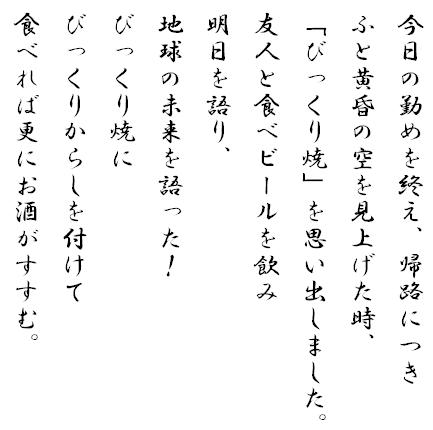 今日の勤めを終え、帰路につき
ふと黄昏の空を見上げた時、
「びっくり焼」を思い出しました。
友人と食べビールを飲み
明日を語り、
地球の未来を語った！
びっくり焼に
びっくりからしを付けて
食べれば更にお酒がすすむ。